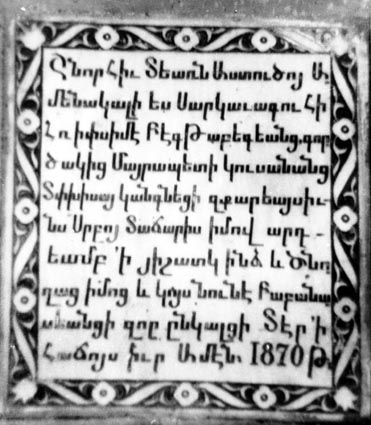 Շնորհիւ Տեառն Աստուծոյ Ա
մենակալի ես Սարկաւագու Հի
Հռիփսիմէ Բէգթաբեգեանց, գոր
ծակից Մայրապետի կուսանանց
Տփխիսայ կանգնեցի զքարեայսիւ-
նս Սրբոյ Տաճարիս իմով արդ-
եամբ ՚ի յիշատկ ինձ և ծնո
ղաց իմոց և կոյս Նունէ
զոր ընկալցի Տէր ՚ի
Հաճոյս Իւր Ամէն. 1870 Թ.